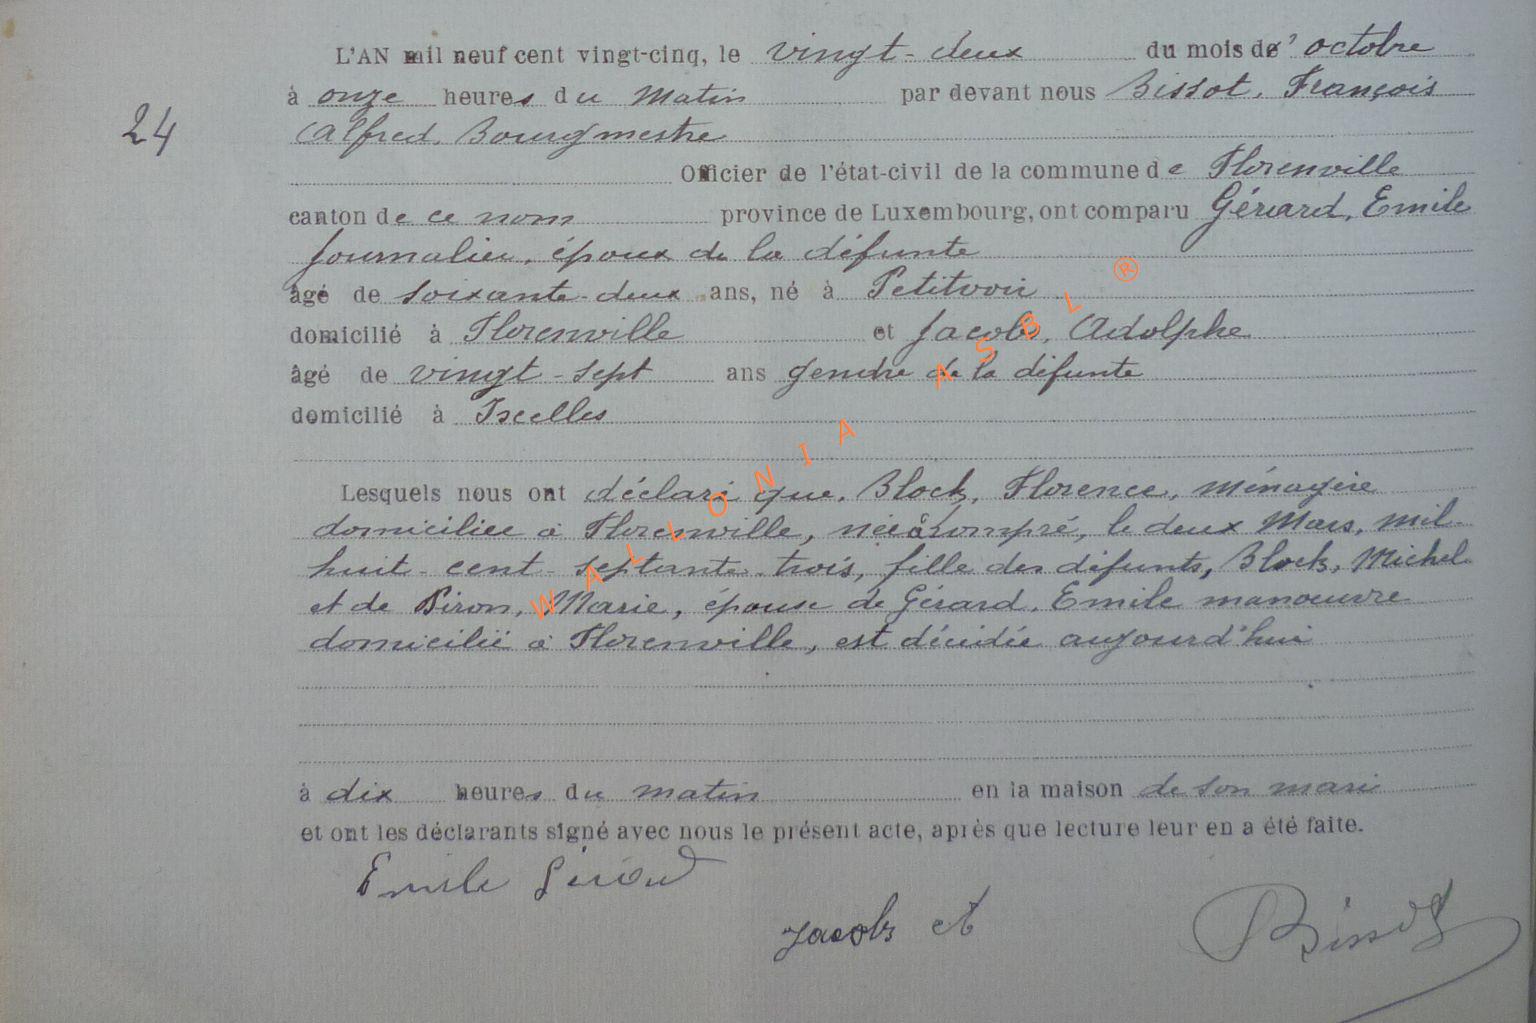 L'AN mil neuf cent vingt-cinq, le vingt-deux du mois d' octobre
24
à onze heures du Matin par devant nous Bissot, François
Alfred, Bourgmestre
Officier de l'état-civil de la commune de Florenville
canton de ce nom province de Luxembourg, ont comparu Gérard, Emile
journalier, époux de la défunte
âgé de soixante-deux ans, né à Petitvoir
domicilié à Florenville et Jacobs, Adolphe
âgé de vingt-sept ans gendre de la défunte
domicilié à Ixelles
Lesquels nous ont déclaré que, Block, Florence, ménagère
domiciliée à Florenville, née à Rompré, le deux Mars, mil-
huit-cent-septante-trois, fille des défunts, Block, Michel
et de Piron, Marie, épouse de Gérard, Emile manœuvre
domicilié à Florenville, est décédée aujourd'hui
à dix heures du matin en la maison de son mari
et ont les déclarants signé avec nous le présent acte, après que lecture leur en a été faite.
Emile Gérard
Jacobs A
Bissot
WALLONIA ASBL ®